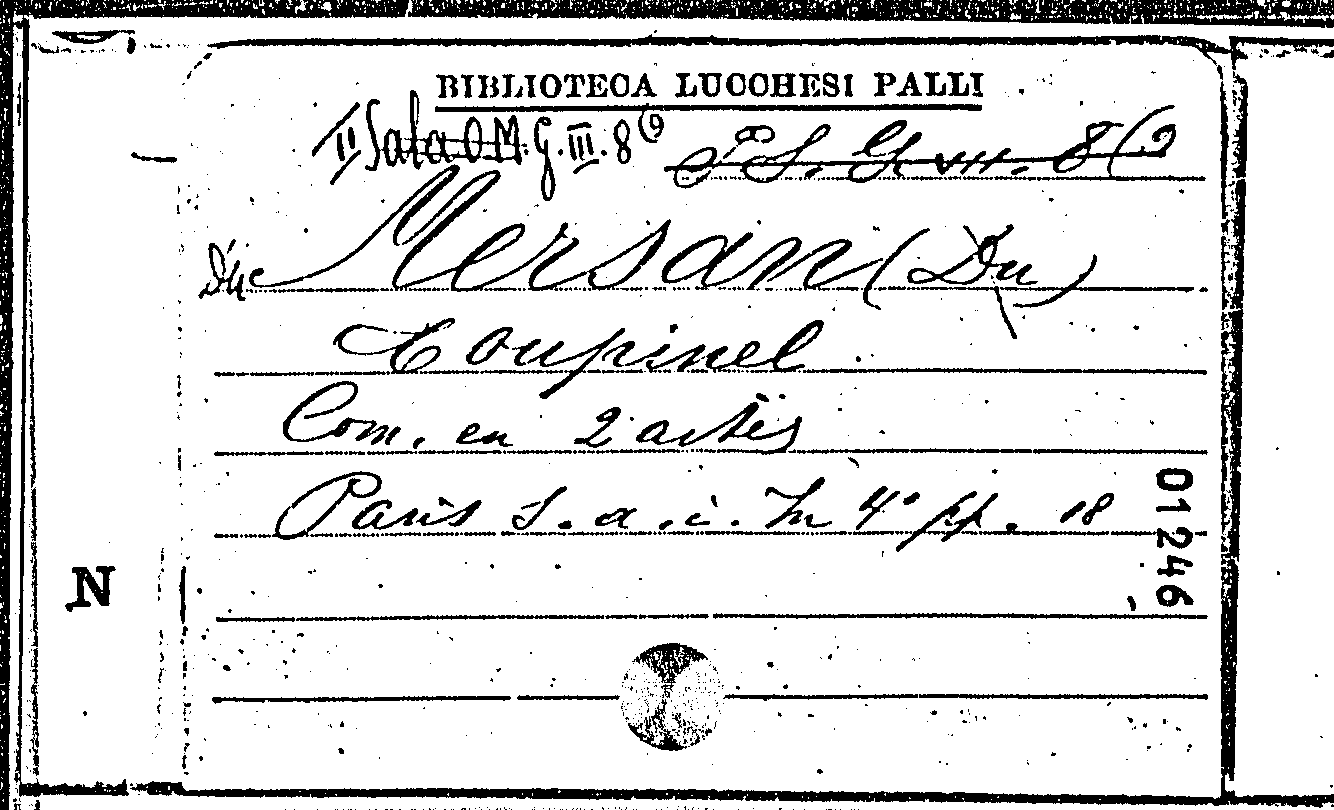 BIBLIOTECA LUCCHESI PALLI
II Sala O.M. G. III. 8(9 P S. G. VII. 8(9
Du Mersan (Du)
Coupinel
Com. en 2 actes
Paris s. a. i. In 4° pp. 18
01246
N